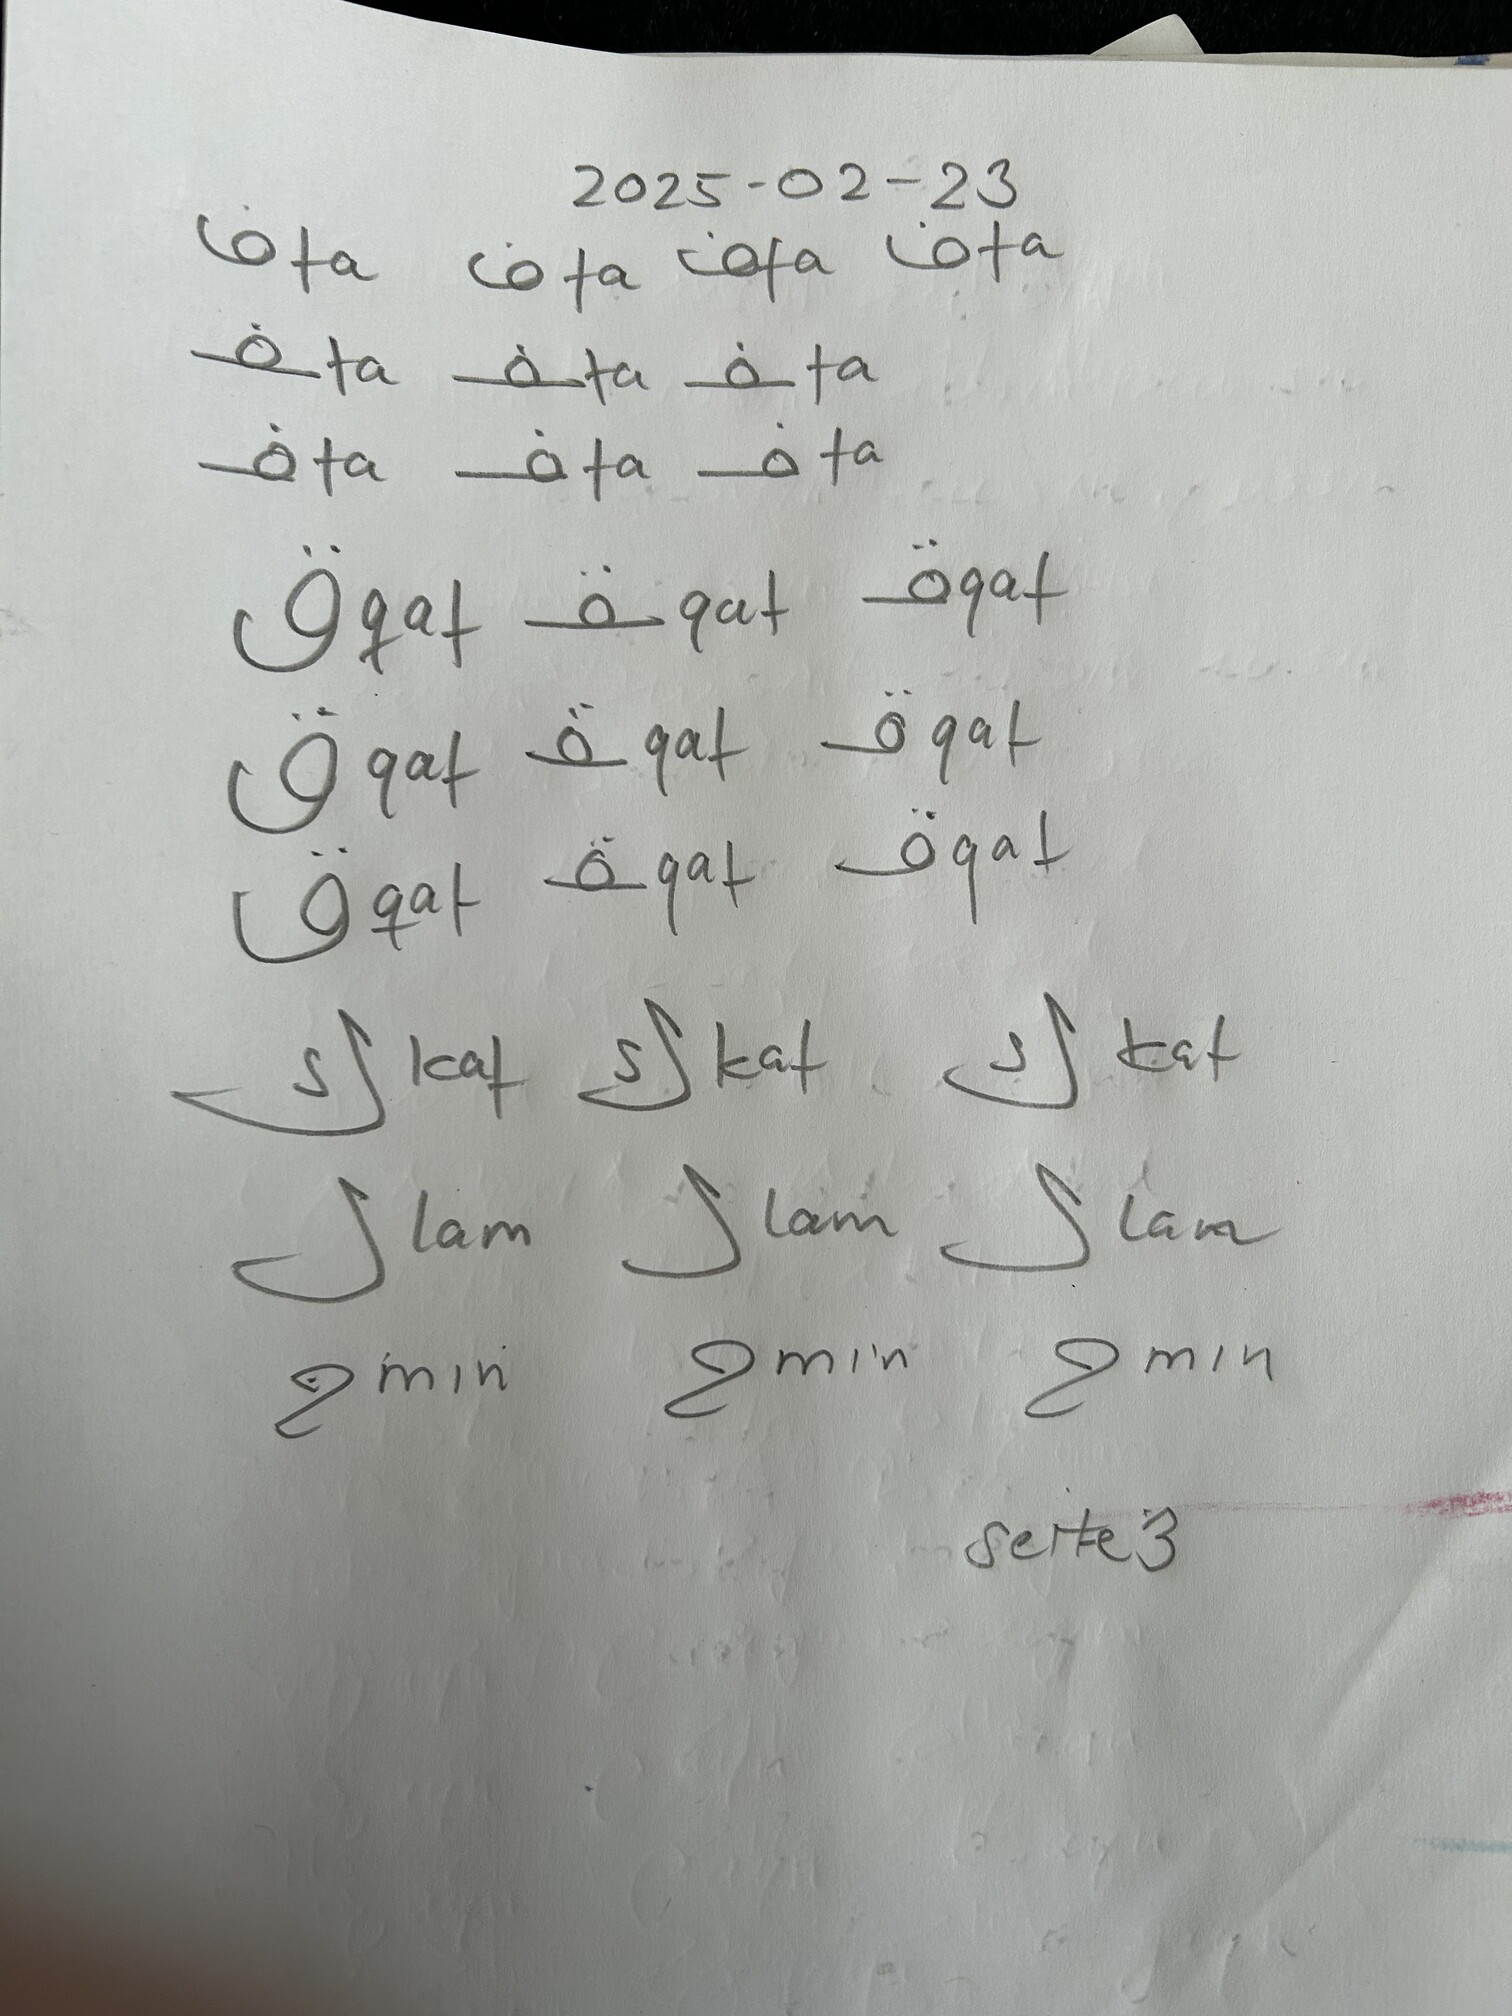 2025-02-23
ف fa ف fa ف fa ف fa
ـفـ fa ـفـ fa ـفـ fa
ـف fa ـف fa ـف fa
ق qaf ـقـ qaf ـق qaf
ق qaf ـقـ qaf ـق qaf
ق qaf ـقـ qaf ـق qaf
ك kaf ك kaf ك kaf
ل lam ل lam ل lam
م min م min م min
seite 3